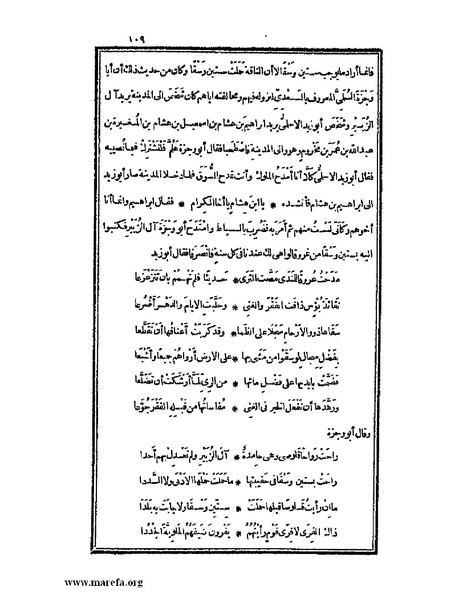 ١٠٩
فانما أراد ما يوجب ستين وسقا لا أن الناقة حملت ستين وسقا وكان من حديث ذلك أن أبا
وجزة السلمي المعروف بالسعدي لنزوله فيهم ومحالفته اياهم كان شخص الى المدينة يريد آل
الزبير وشخص أبو زيد الاسلمي يريد ابراهيم بن هشام بن اسمعيل بن هشام بن المغيرة بن
عبد الله بن عمر بن مخزوم وهو والي المدينة فاصطحبا فقال أبو وجزة هلم فلنشترك فيما نصيبه
فقال أبو زيد الاسلمي كلا أنا أمدح الملوك وأنت تمدح السوق فلما دخلا المدينة صار أبو زيد
الى ابراهيم بن هشام فأنشده * يا ابن هشام يا أخا الكرام * فقال ابراهيم وانما أنا
أخوهم وكأني لست منهم ثم أمر به فضرب بالسياط وامتدح أبو وجزة آل الزبير فكتبوا
اليه بستين وسقا من تمر وقالوا هي لك عندنا في كل سنة فانصرفا فقال أبو زيد
مدحت عروقا للندى مصت الثرى * حديثا فلم تهمم بأن تتزعزعا
نقائذ بؤس ذاقت الفقر والغنى * وحلبت الايام والدهر أضرعا
سقاها ذوو الأرحام سجلا على الظما * وقد كربت أعناقها أن تقطعا
بفضل سجال لو سقوا من مشى بها * على الارض أرواهم جميعا وأشبعا
فضمت بأيديها على فضل مائها * من الري لما أوشكت أن تضلعا
وزهدها أن تفعل الخير في الغنى * مقاساتها من قبله الفقر جوعا
وقال أبو وجزة
راحت رواحا قلوصي وهي حامدة * آل الزبير ولم تعدل بهم أحدا
راحت بستين وسقا في حقيبتها * ما حملت حملها الأدنى ولا السددا
ما ان رأيت قلوصا قبلها حملت * ستين وسقا ولا جابت به بلدا
ذاك القرى لا قرى قوم رأيتهم * يقرون ضيفهم الملوية الجددا
www.marefa.org